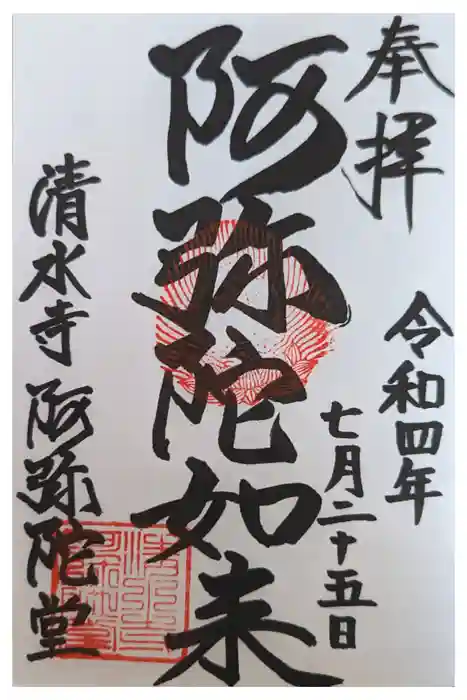 奉拝
令和四年
七月二十五日
阿弥陀如来
清水寺 阿弥陀堂